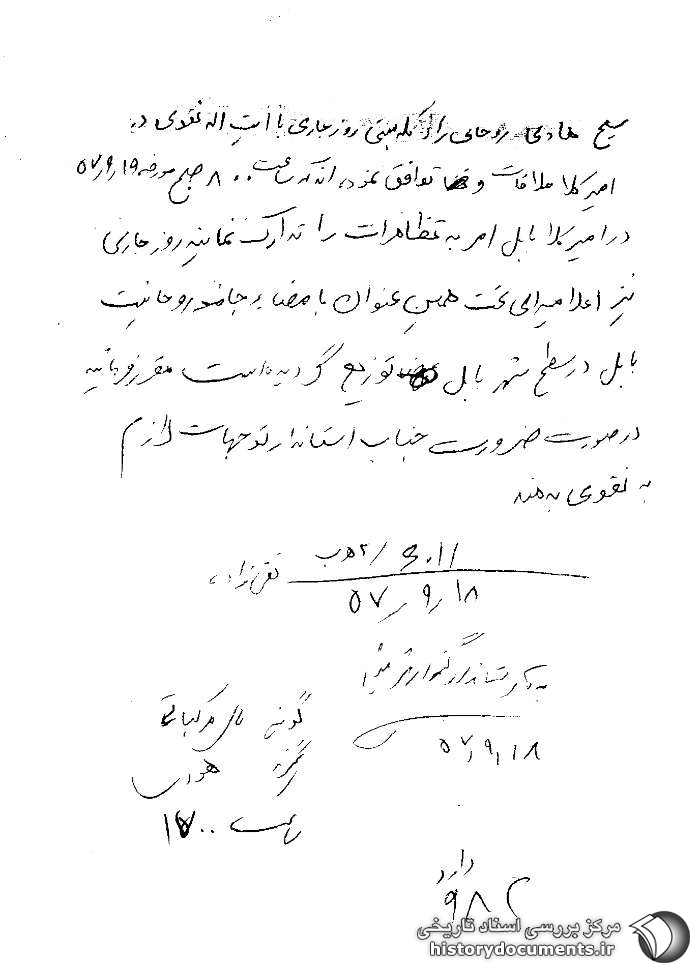 شیخ هادی روحانی راد کله بستی روز جاری با آیت اله نقوی در
امیرکلا ملاقات و توافق نموده اند که ساعت ۸۰۰ صبح مورخه ۵۷/۹/۱۹
در امیرکلا بابل امر به تظاهرات را تدارک نمایند روز جاری
نیز اعلامیه ای تحت همین عنوان با مضاء جامعه روحانیت
بابل در سطح شهر بابل توزیع گردیده است مقرر فرمائید
در صورت ضرورت جناب استاندار توجهات لازم
به نقوی بدهند
۳۰۱۱ / ۲ ه‍ ب تقی زاده
۵۷/۹/۱۸
به عرض استاندار گزارش شد
۵۷/۹/۱۸
گوینده
گیرنده
ساعت ۱۷۰۰
دارد
۹۸۲
مرکز بررسی اسناد تاریخی
historydocuments.ir